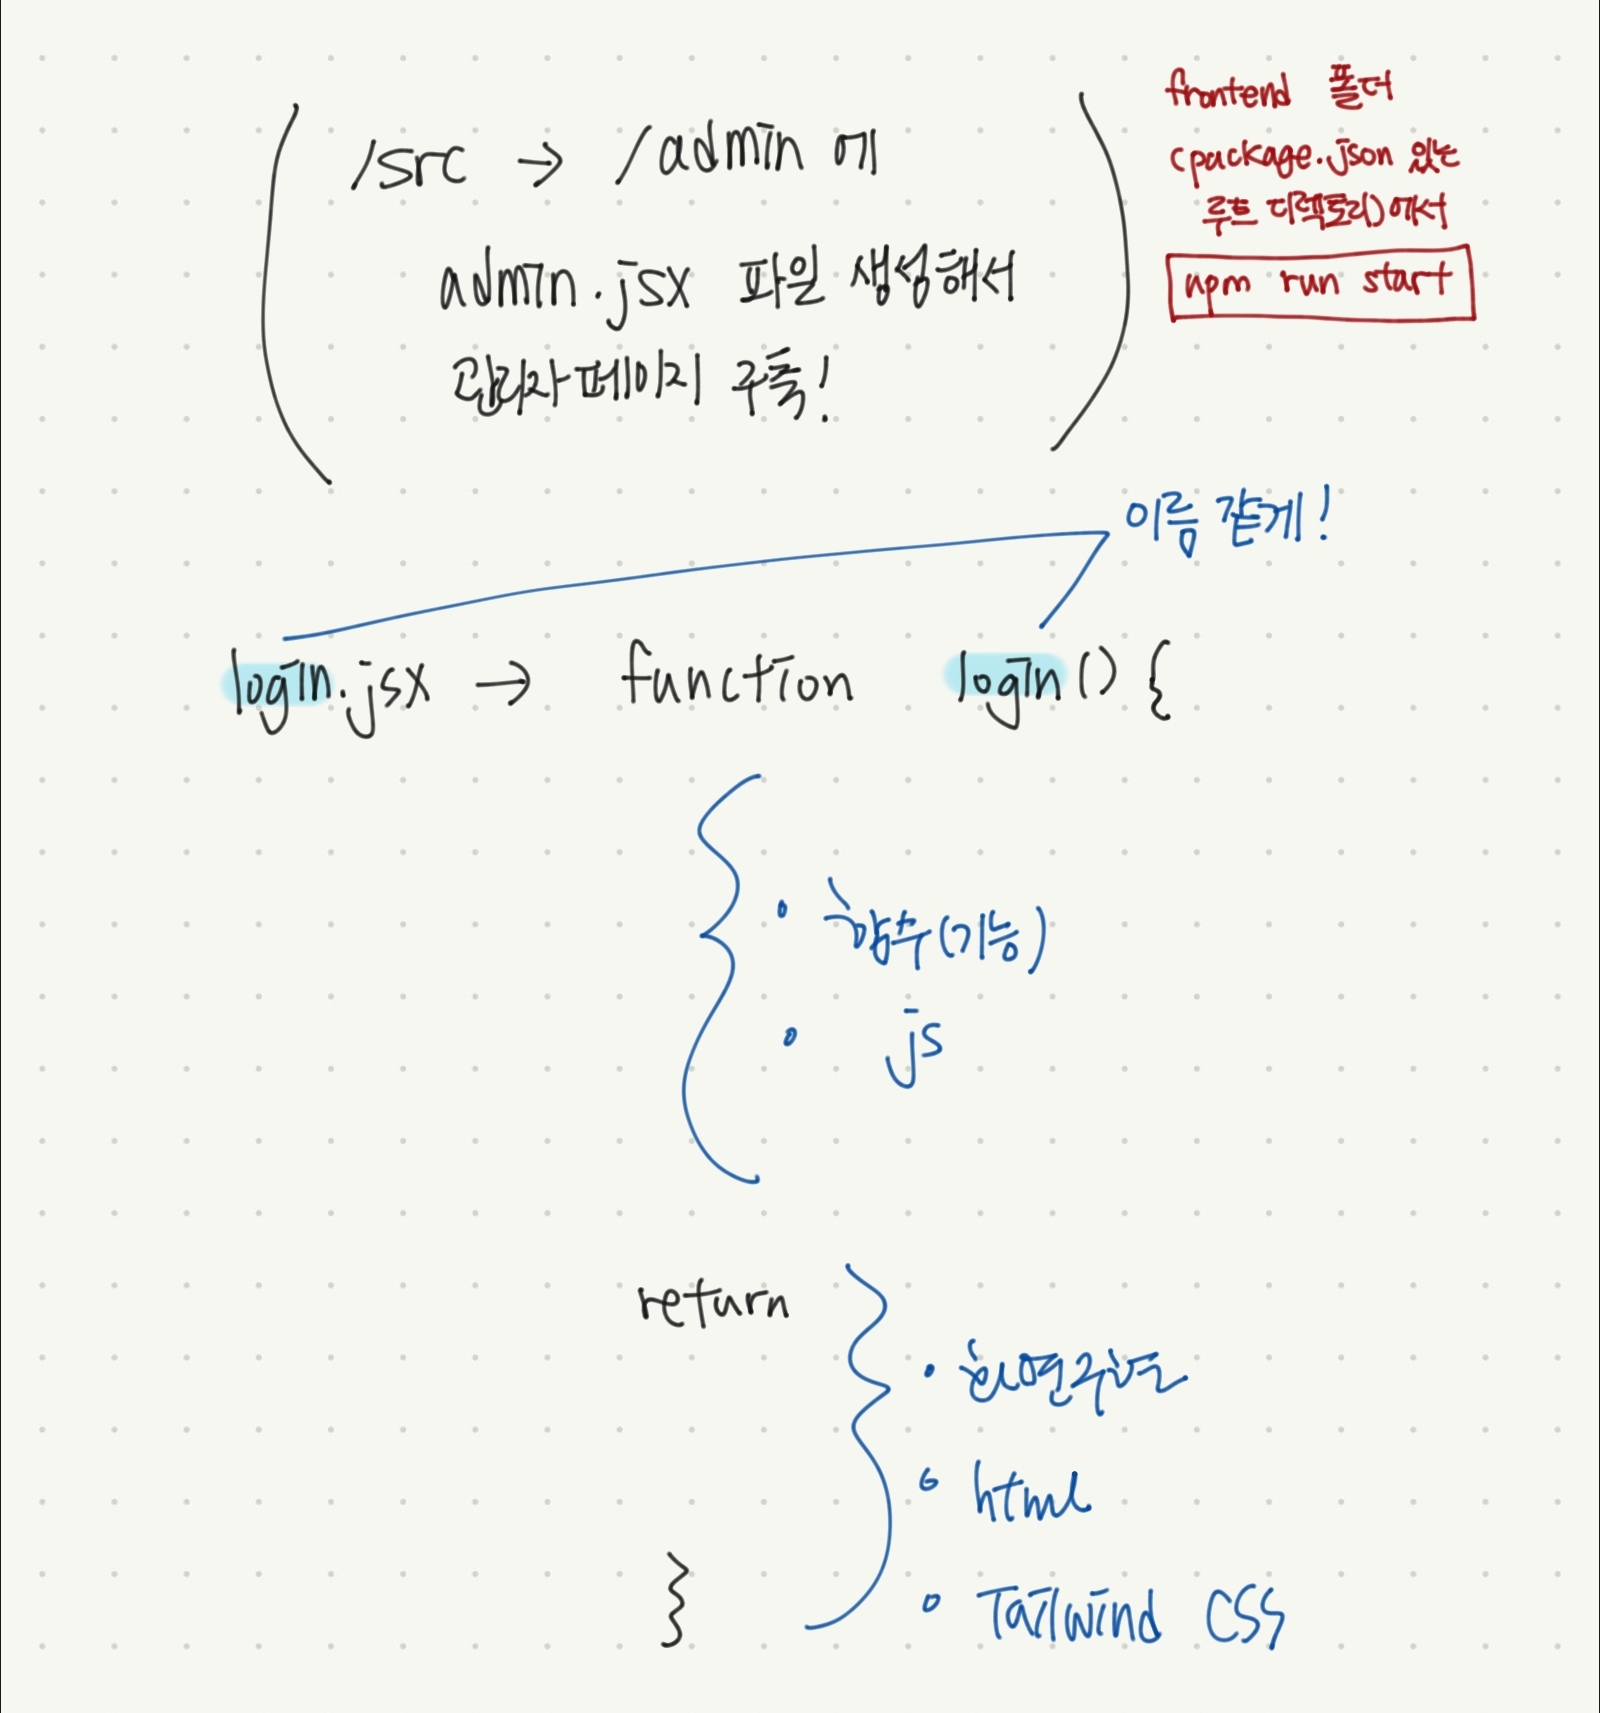 /src → /admin 에
admin.jsx 파일 생성해서
관리자페이지 구축!
frontend 폴더
(package.json 있는
루트 디렉토리)에서
npm run start
이름 같게!
login.jsx → function login() {
• 함수(기능)
• js
return
• 화면구현
• html
• Tailwind CSS
}